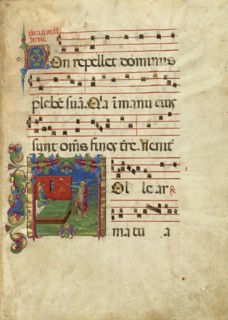 Non repellet dominus
plebē suā. Q'a ī manu eius
sunt om̄s fines tr̄e. Venitē
Tol le ar
ma tu a